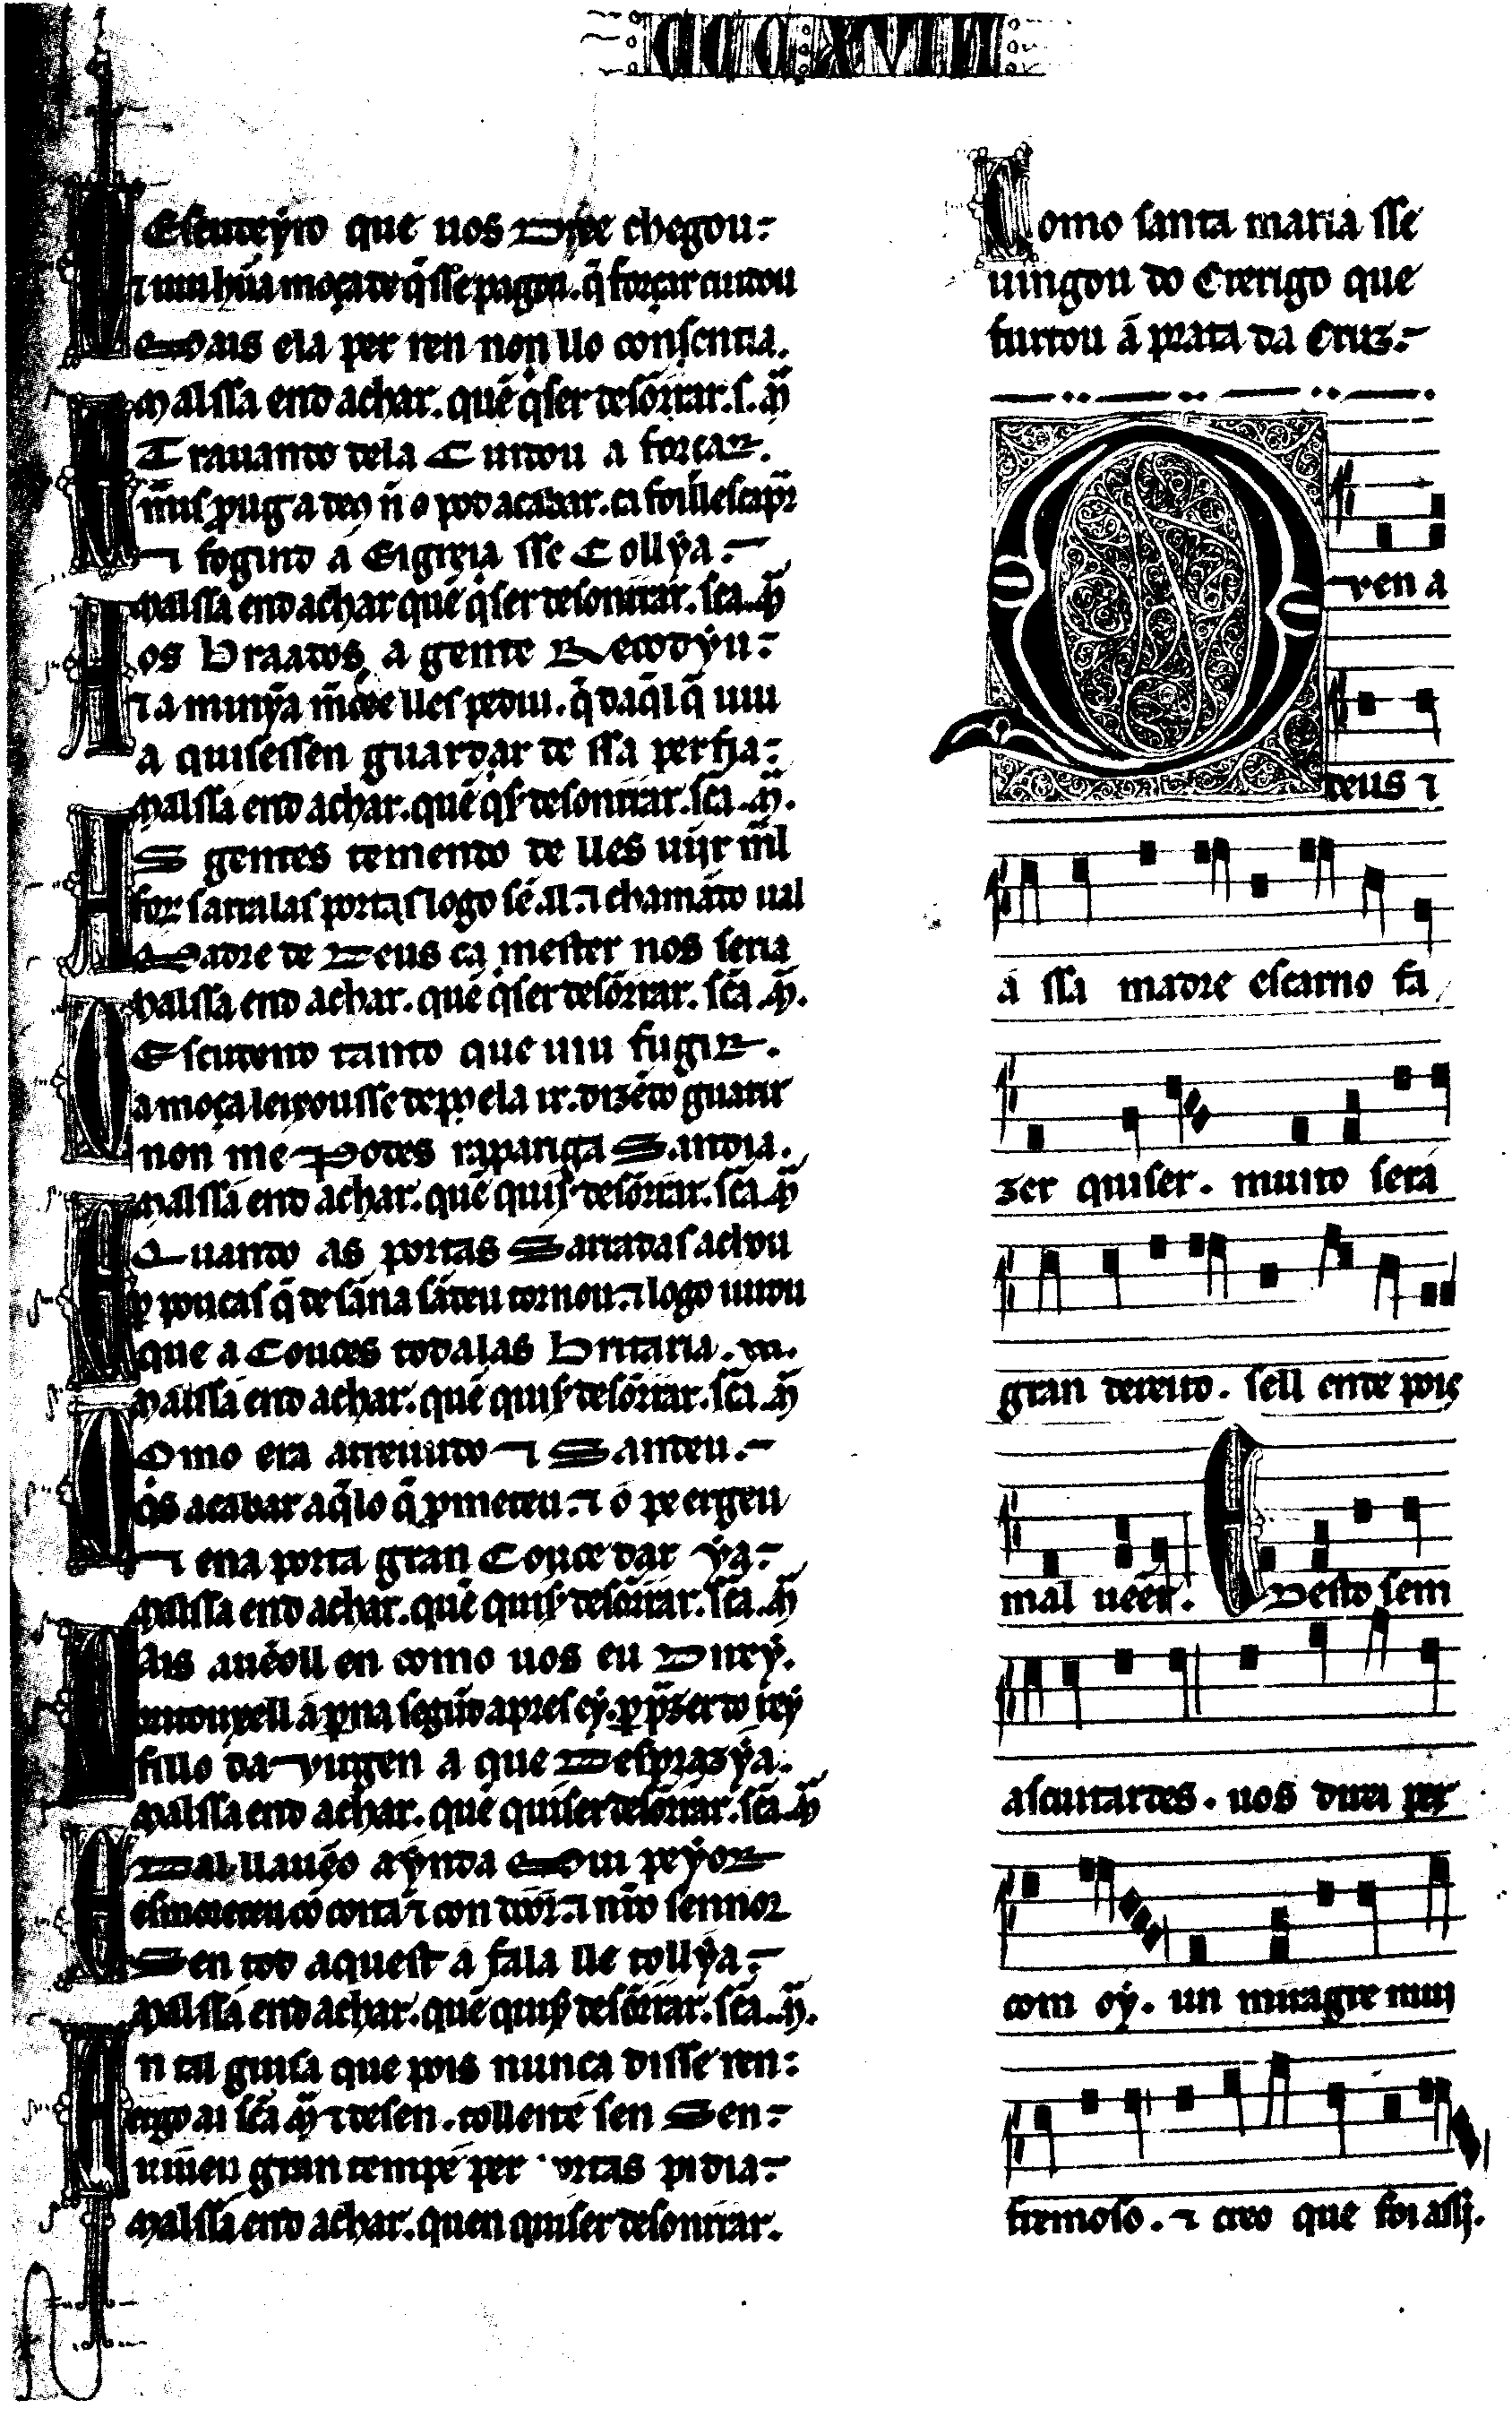 CCC XVIII
O Escudeyro que uos Dixe chegou:
⁊ uiu hũa moça de q̃ sse pagou. q̃ forçar cuidou
Mais ela per ren non llo consentia.
Mal ssa end achar. quẽ q̇ser desõrrar. s. M̃
E Trauando dela Cuidou a forçar.
mais proug a deus ñ o pod acabar. ca foill escapar
⁊ fogind á Eigreia sse Collya:
Mal ssa end achar quẽ q̇ser desonrrar. sca. M̃
Aos Braados a gente Recodyu:
⁊ a minỹa mercee lles pediu. q̃ daq̃l q̃ uiu
a quisessen guardar de ssa perfia:
Mal ssa end achar. quẽ q̇s̉ desonrrar. sca. M̃.
AS gentes temendo de lles uĩjr mal
for sarralas portas logo sẽ al. ⁊ chamãdo ual
Madre de Deus ca mester nos seria
Mal ssa end achar. quẽ q̇ser desõrrar. scã. M̃.
O Escudeiro tanto que uiu fugir.
a moça leixousse depos ela ir. dizẽdo guarir
non me Podes rapariga Sandia.
Mal ssa end achar. quẽ quis̉ desõrrar. scã. M̃
E Quando as portas Sarradas achou
per poucas q̃ de sãna sãdeu tornou. ⁊ logo iurou
que a Couces todalas Britaria.
Mal ssa end achar. quẽ quis̉ desõrrar. scã. M̃
Como era atreuudo ⁊ Sandeu.
q̇s acabar aq̃lo q̃ prometeu. ⁊ o pe ergeu
⁊ ena porta gran Couce dar ya:
Mal ssa end achar. quẽ quis̉ desõrrar. scã. M̃
Mais auẽoll en como uos eu Direy.
britouxell a perna segũd apres ey. per prazer do rey
fillo da Uirgen a que Desprazya.
Mal ssa end achar. quẽ quiser desõrrar. scã. M̃
E Dal llauẽo aynda Mui peyor
esmoreceu cõ coita ⁊ con door. ⁊ nr̃o sennor
Sen tod aquest a fala lle tollya:
Mal ssa end achar. quẽ quis̉ desõrrar. scã. M̃.
En tal guisa que pois nunca disse ren:
ergo ai scã M̃ ⁊ desen. tolleitẽ sen Sen:
uiueu gran tempẽ per portas pidia:
Mal ssa end achar. quen quiser desonrrar.
Como santa maria sse
uingou do Crerigo que
furtou á prata da Cruz:
Quen a
deus ⁊
á ssa madre escarno fa
zer quiser. muito será
gran dereito. sell ende pois
mal ueẽr. E Desto sem
ascuitardes. uos direi per
com oý. un miragre mui
fremoso. ⁊ creo que foi assi.